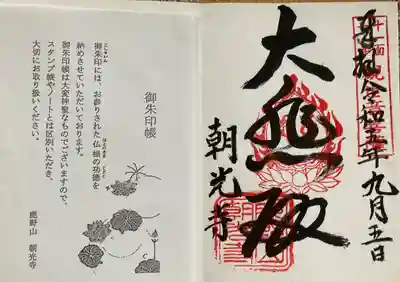 奉拝 令和五年九月五日
大悲殿
朝光寺
御朱印帳
御朱印には、お参りされた仏様の功徳を
納めさせていただいております。
御朱印帳は大変神聖なものでございますので、
スタンプ帳やノートとは区別いただき、
大切にお取り扱いください。
鹿野山 朝光寺